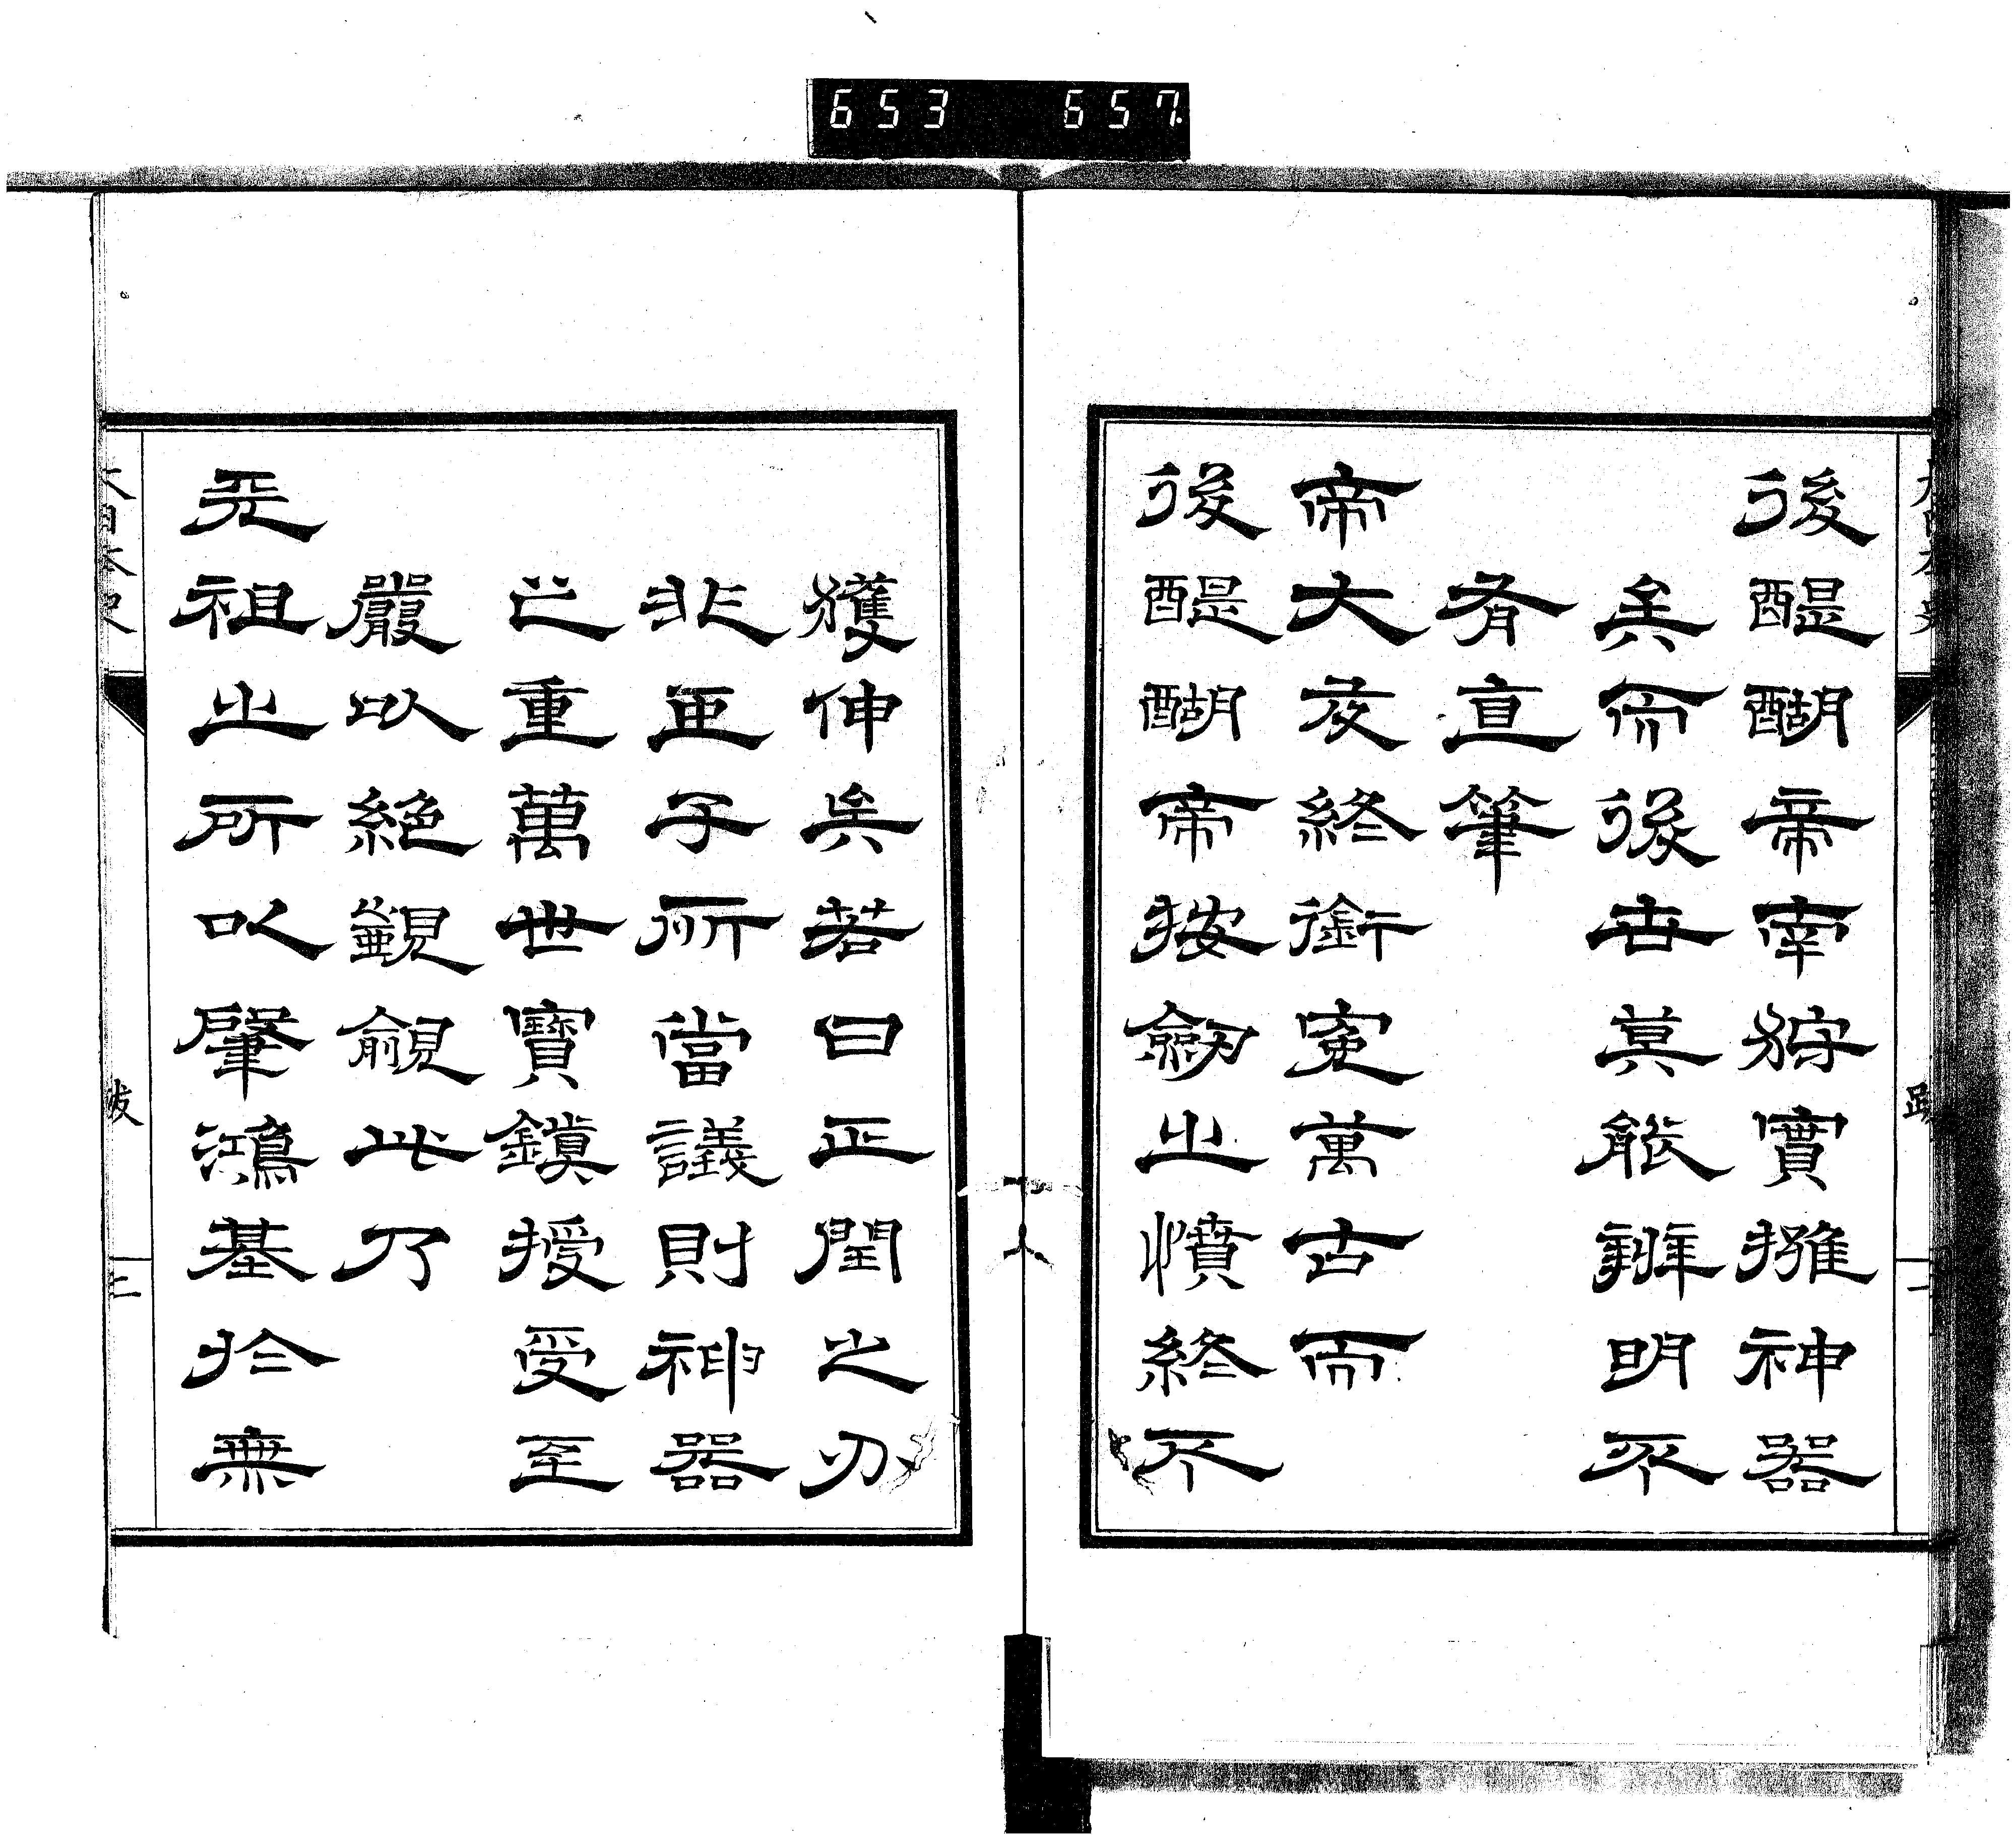 653 657
大日本史
跋
二
後醍醐帝南狩實擁神器
矣而後世莫能辨明不
有直筆
帝大友終銜寃萬古而
後醍醐帝按劔之憤終不
獲伸矣若曰正閏之分
非臣子所當議則神器
之重萬世寶鎮授受至
嚴以絕覬覦此乃
天祖之所以肇鴻基於無
大日本史
跋
三